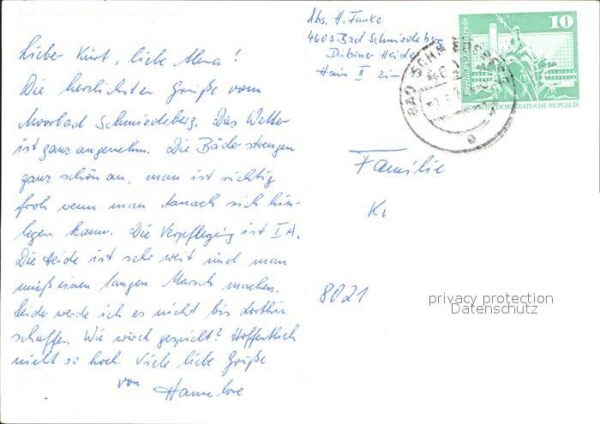 Abs. H. Funke
4603 Bad Schmiedeberg
Dübener Heide
Haus II Zim
10
DEUTSCHE DEMOKRATISCHE REPUBLIK
Lieber Kurt, liebe
Die herzlichsten Grüße vom
Moorbad Schmiedeberg. Das Wetter
ist ganz angenehm. Die Bäder strengen
ganz schön an, man ist richtig
froh wenn man danach sich hin-
legen kann. Die Verpflegung ist I A.
Die Heide ist sehr weit und man
muß einen langen Marsch machen.
Leider werde ich es nicht bis dorthin
schaffen. Wie wird gespielt? Hoffentlich
nicht so hoch. Viele liebe Grüße
von
Hannelore
Familie
K
8021
privacy protection
Datenschutz